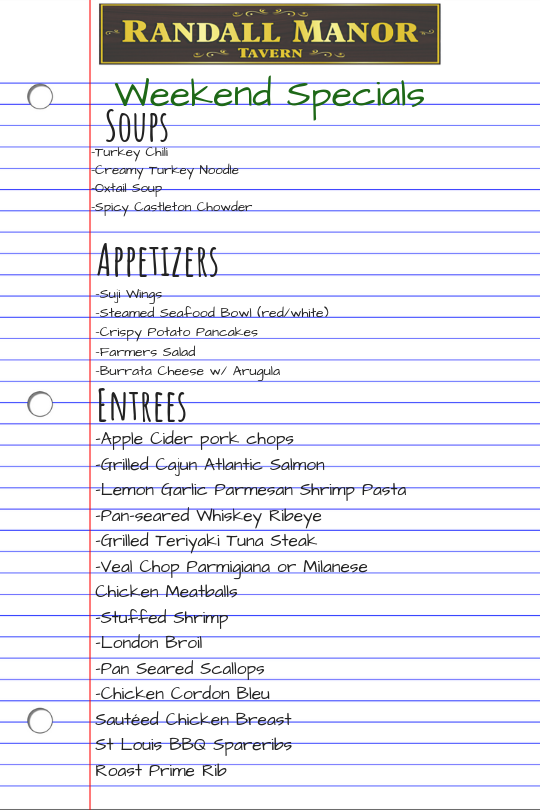 RANDALL MANOR
TAVERN
Weekend Specials
Soups
-Turkey Chili
-Creamy Turkey Noodle
-Oxtail Soup
-Spicy Castleton Chowder
Appetizers
-Suji Wings
-Steamed Seafood Bowl (red/white)
-Crispy Potato Pancakes
-Farmers Salad
-Burrata Cheese w/ Arugula
Entrees
-Apple Cider pork chops
-Grilled Cajun Atlantic Salmon
-Lemon Garlic Parmesan Shrimp Pasta
-Pan-seared Whiskey Ribeye
-Grilled Teriyaki Tuna Steak
-Veal Chop Parmigiana or Milanese
Chicken Meatballs
-Stuffed Shrimp
-London Broil
-Pan Seared Scallops
-Chicken Cordon Bleu
Sautéed Chicken Breast
St Louis BBQ Spareribs
Roast Prime Rib